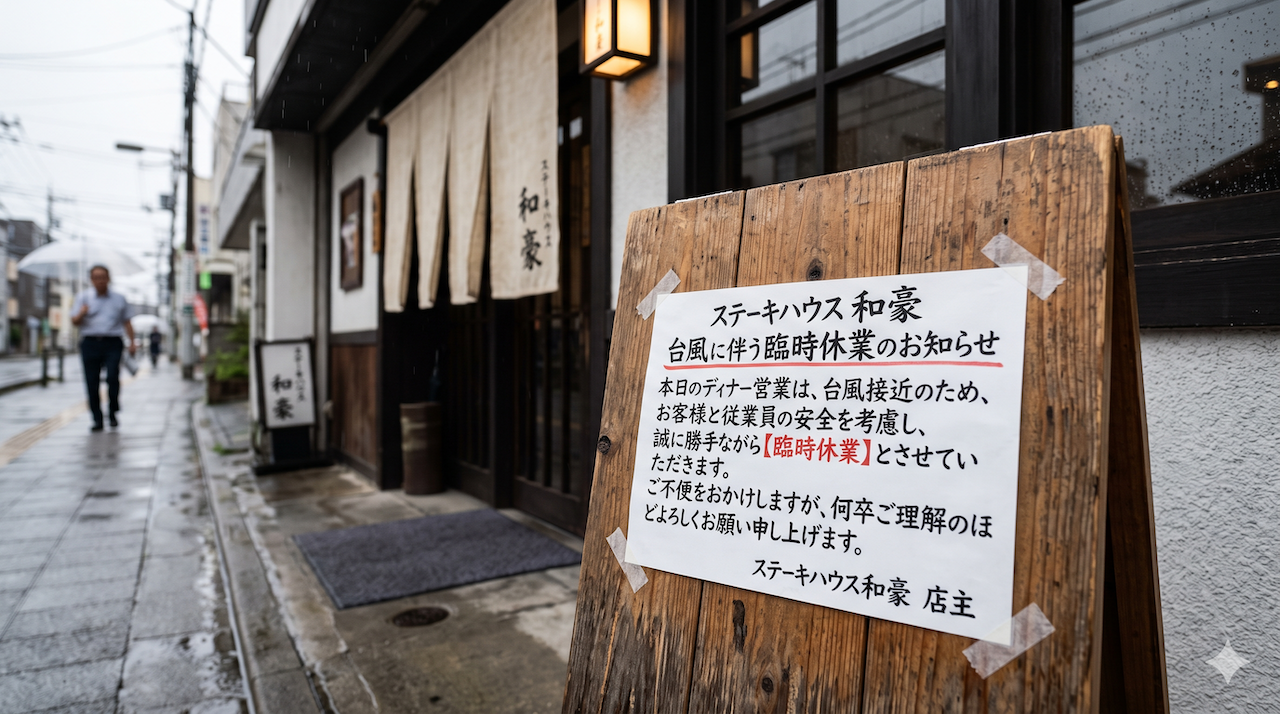 ステーキハウス
和豪
和豪
ステーキハウス 和豪
台風に伴う臨時休業のお知らせ
本日のディナー営業は、台風接近のため、
お客様と従業員の安全を考慮し、
誠に勝手ながら【臨時休業】とさせてい
ただきます。
ご不便をおかけしますが、何卒ご理解のほ
どよろしくお願い申し上げます。
ステーキハウス和豪 店主